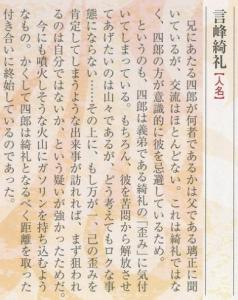 言峰綺礼【人名】
兄にあたる四郎が何者であるかは父である璃正に聞
いているが、交流はほとんどない。これは綺礼ではな
く、四郎の方が意識的に彼を忌避しているため。
というのも、四郎は義弟である綺礼の「歪み」に気付
いてしまっている。もちろん、彼を苦悶から解放させ
てあげたいのは山々であるが、どう考えてもロクな事
態にならない……その上に、もし万が一、己の歪みを
肯定してしまうような出来事が訪れれば、まず狙われ
るのは自分ではないか、という疑いが強かったためだ。
今にも噴火しそうな火山にガソリンを持ち込むよう
なもの。かくして四郎は綺礼となるべく距離を取った
付き合いに終始しているのであった。